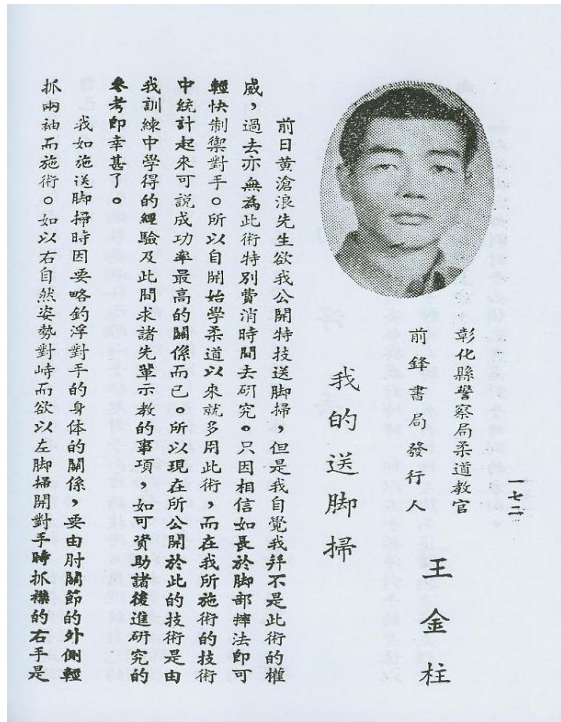 一七二
彰化縣警察局柔道教官
前鋒書局發行人
王金柱
我的送脚掃
前日黃滄浪先生欲我公開特技送脚掃，但是我自覺我拜不是此術的權
威，過去亦無為此術特別費消時間去研究。只因相信如長於脚部摔法即可
輕快制禦對手。所以自開始學柔道以來就多用此術，而在我所施術的技術
中統計起來可說成功率最高的關係而已。所以現在所公開於此的技術是由
我訓練中學得的經驗及此間求諸先輩示教的事項，如可資助諸後進研究的
參考即幸甚了。
我如施送脚掃時因要略釣浮對手的身体的關係，要由肘關節的外側輕
抓兩袖而施術。如以右自然姿勢對峙而欲以左脚掃開對手時抓襟的右手是